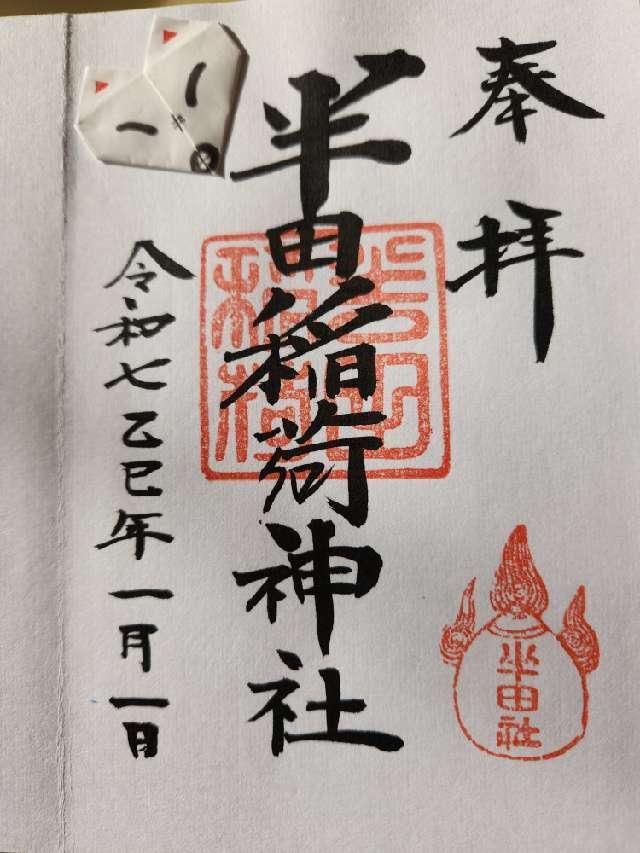 奉拝
半田稲荷神社
令和七乙巳年一月一日
半田稲荷
半田社